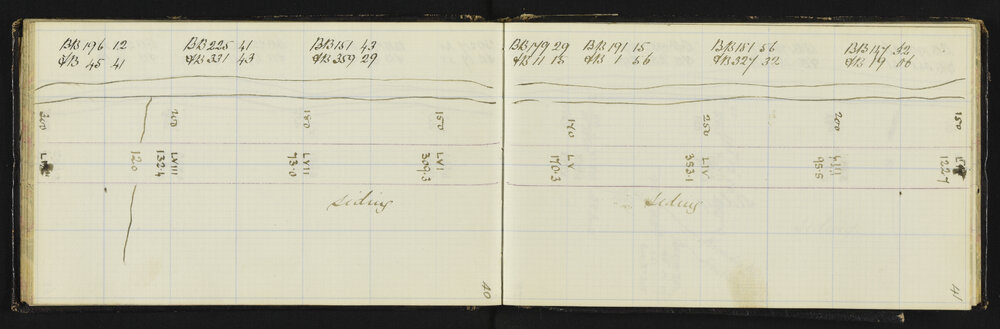 BB 196 12 BB 225 41 BB 181 43
FB 45 41 FB 331 43 FB 359 29
200 200 180 150
120 132.4 LVIII 73.0 LVII 309.3 LVI
Siding
40
BB 179 29 BB 191 15 BB 181 56 BB 147 32
FB 11 15 FB 1 56 FB 327 32 FB 19 06
140 250 200 150
170.3 LV 353.1 LIV 95.5 LIII 122.7
Siding
41